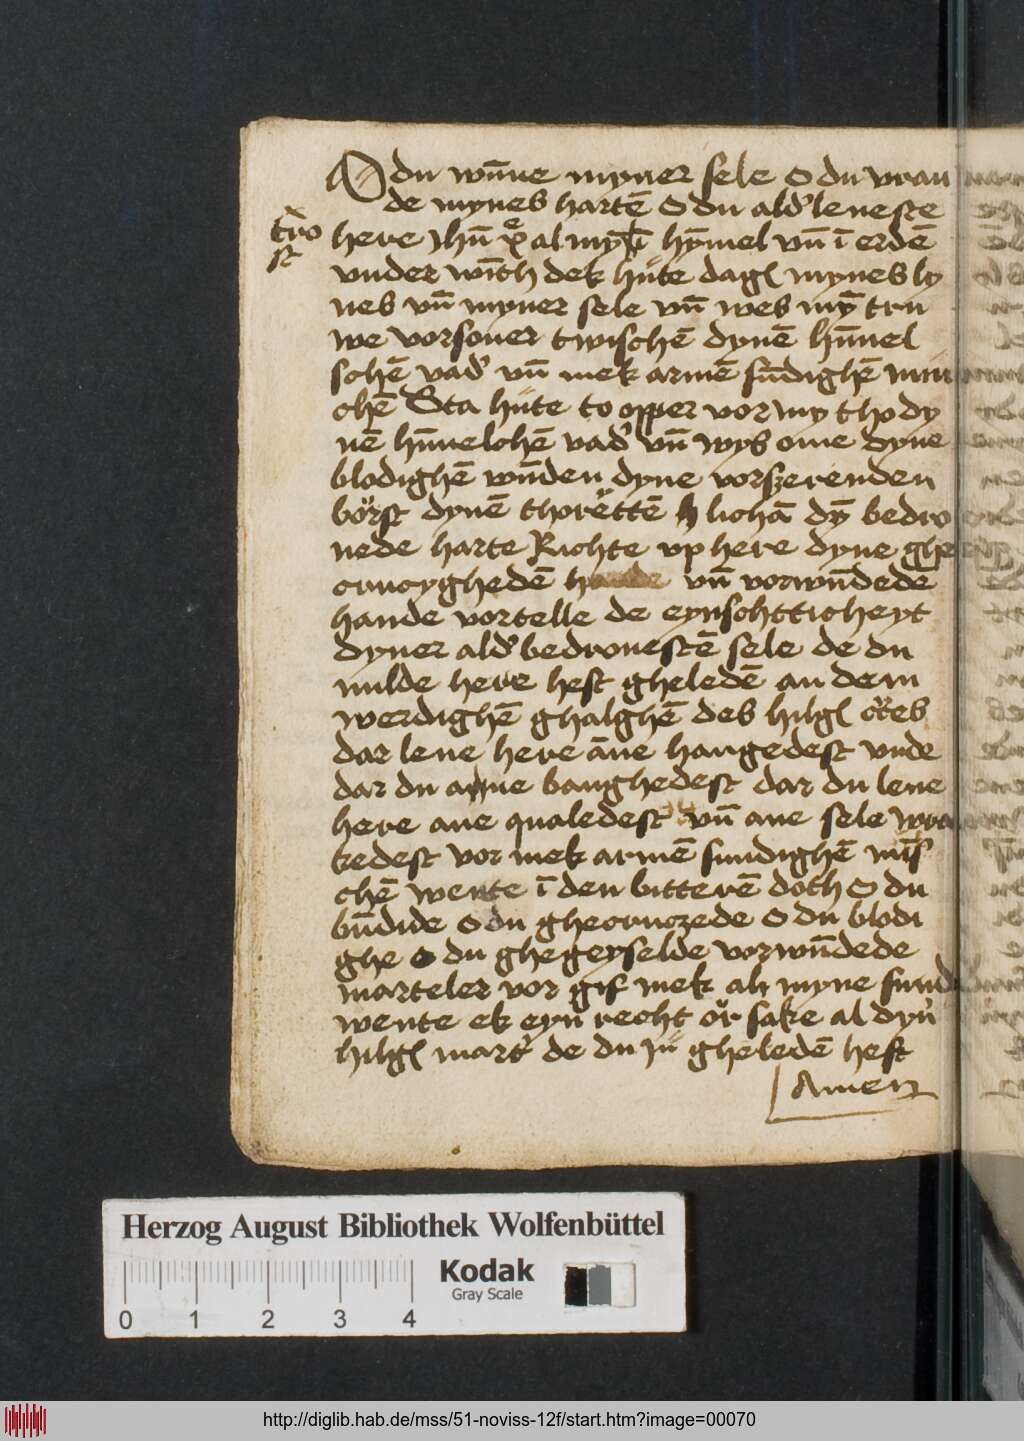 O du wūne myner sele O du vrau
de mynes hartē O du ald'leueste
tro
st
here Jhū xp̄e al my t ī hȳmel vn̄ ī erdē
vnder wīth dek hüte dagh mynes ly
ues vn̄ myner sele vn̄ wes mȳ tru
we vorsoner twischē dynē hm̄mel
schē vad' vn̄ mek armē sūdighē min
chē Sta hüte to opper vor my tho dy
nē hm̄melchē vad' vn̄ wys ome dyne
blodighē wūden dyne vorszerenden
börst dynē thorettē lichā dȳ bedro
uede harte Richte vp here dyne ghe
crucyghedē vn̄ vorwūdede
hande vortelle de eynschtticheyt
dyner ald'bedrouestē sele de du
milde here hest gheledē an dem
werdighē ghalghē des hilgh cr̄ces
dar leue here āne hangedest vnde
dar du anne banghedest dar du leue
here ane qualedest vn̄ ane sele wra
kedest vor mek armē sundighē mīs
chē wente ī den bitterē doth O du
būdide O du gheoruczede O du blodi
ghe O du ghegeyselde vorwūdede
marteler vor gif mek alr myne sund
wente ek eyn recht ör sake al dyn'
hilgh mart' de du Jü gheledē hest
Amen
Herzog August Bibliothek Wolfenbüttel
Kodak
Gray Scale
0 1 2 3 4
http://diglib.hab.de/mss/51-noviss-12f/start.htm?image=00070